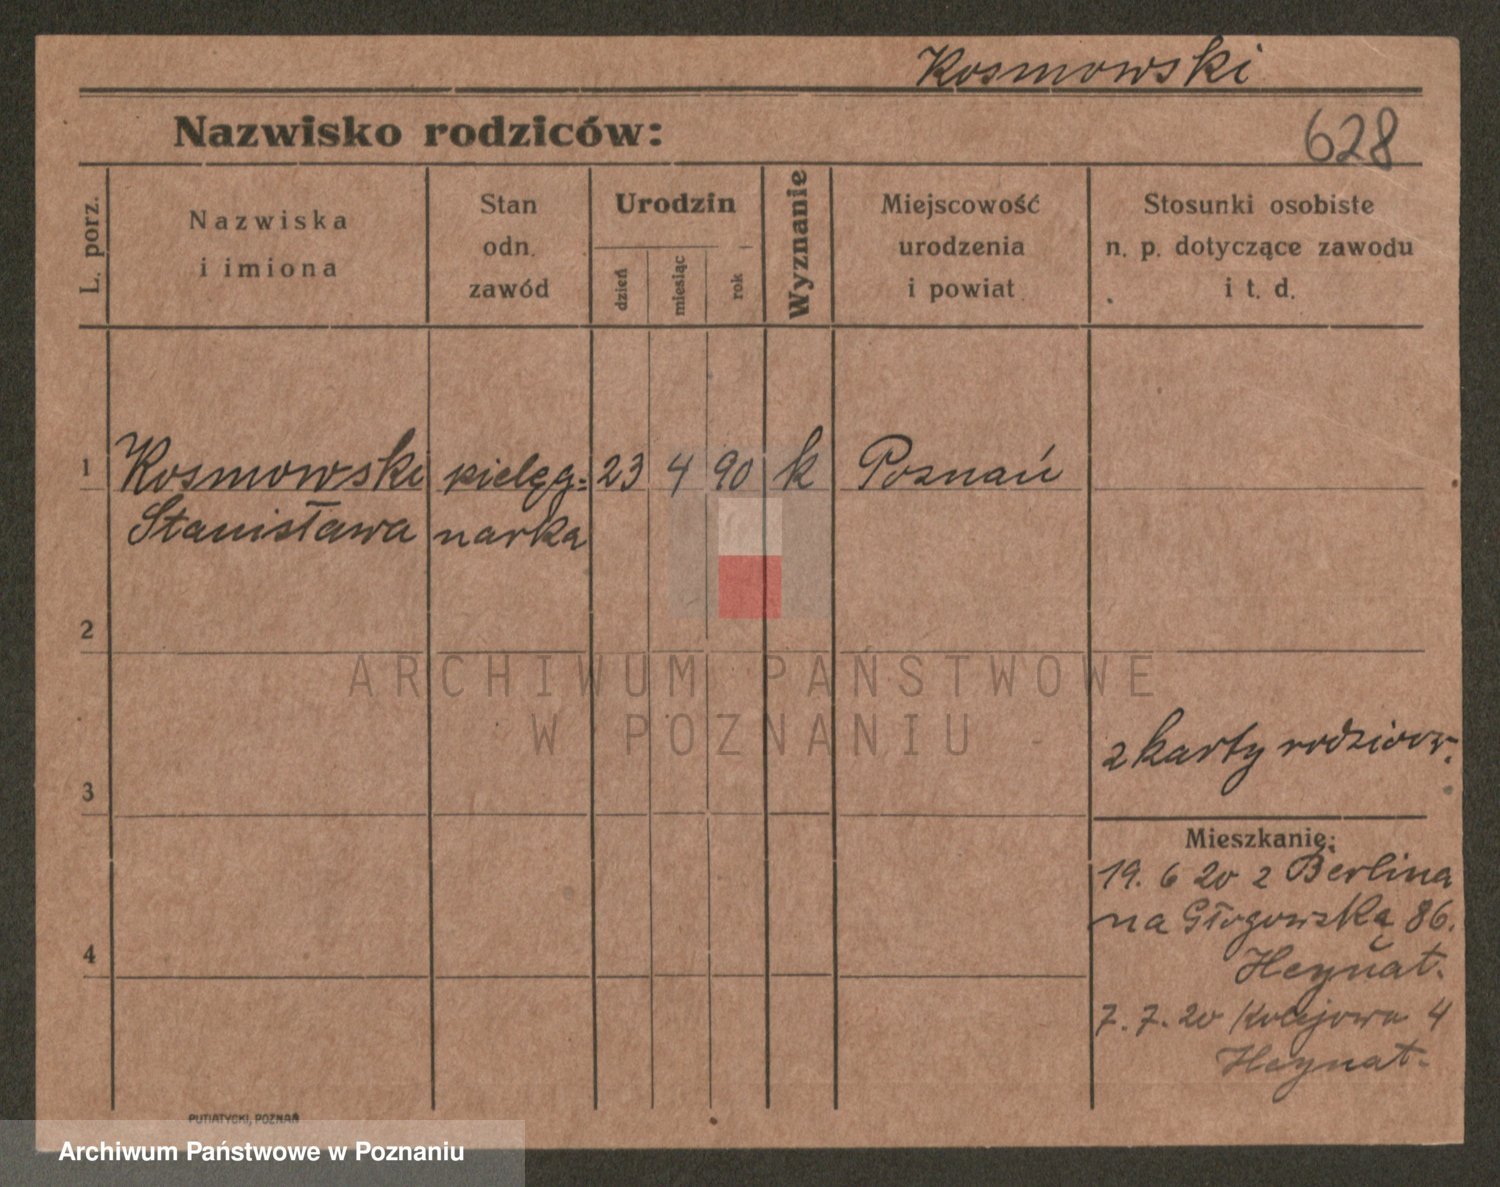 Kosmowski
Nazwisko rodziców:
628
L. porz.
Nazwiska
i imiona
Stan
odn.
zawód
Urodzin
dzień
miesiąc
rok
Wyznanie
Miejscowość
urodzenia
i powiat
Stosunki osobiste
n. p. dotyczące zawodu
i t. d.
1 Kosmowski pielęg= 23 4 90 k Poznań
Stanisława narka
2
ARCHIWUM PAŃSTWOWE
W POZNANIU
z karty rodzicow.
3
Mieszkanie:
19. 6 20 z Berlina
na Głogowską 86.
Heynat.
4
7. 7. 20 Kolejowa 4
Heynat.
PUTIATYCKI, POZNAŃ
Archiwum Państwowe w Poznaniu